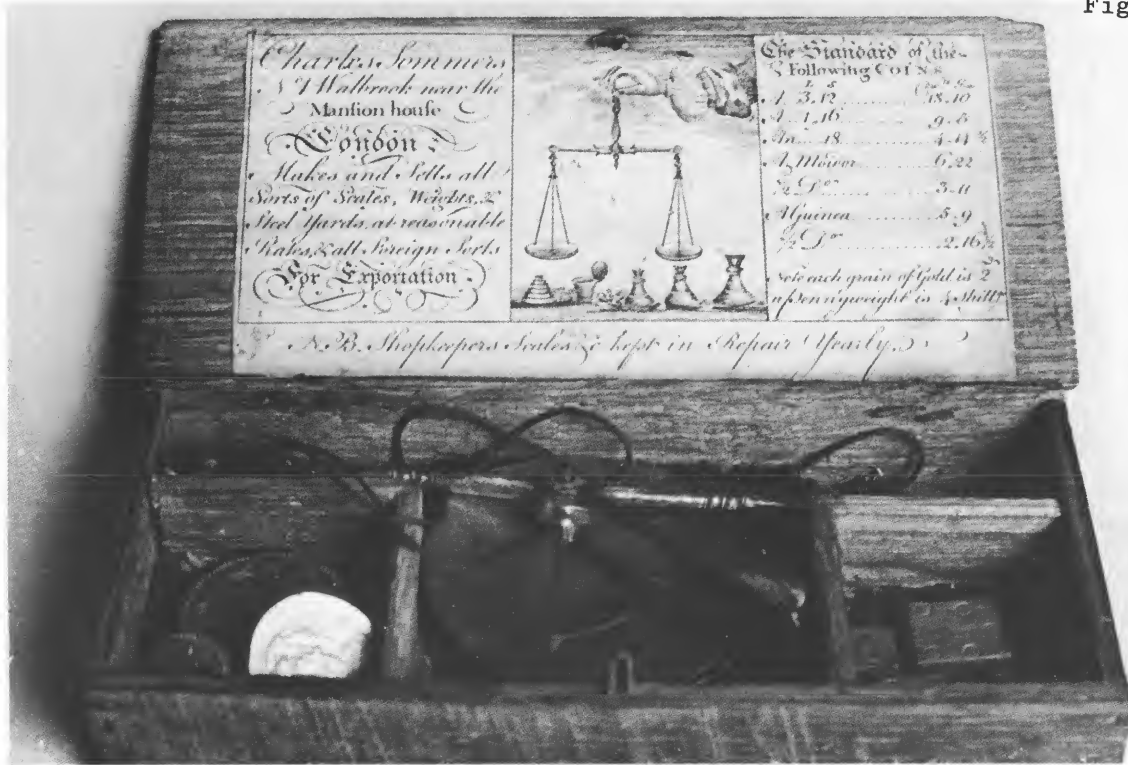 Fig
Charles Sommers
Walbrook near the
Mansion house
London
Makes and Sells all
Sorts of Scales, Weights, &
Steel Yards, at reasonable
Rates, & all Foreign Sorts
For Exportation
The Standard of the
Following COINS
L S
A 3.12 18.10
A 1.16 9.5
An 18 4.14½
A Moidor 6.22
½ Do 3.11
A Guinea 5.9
½ Do 2.16½
Note each grain of Gold is 2
a pennyweight is 4 shills
N.B. Shopkeepers Scales &c kept in Repair Yearly